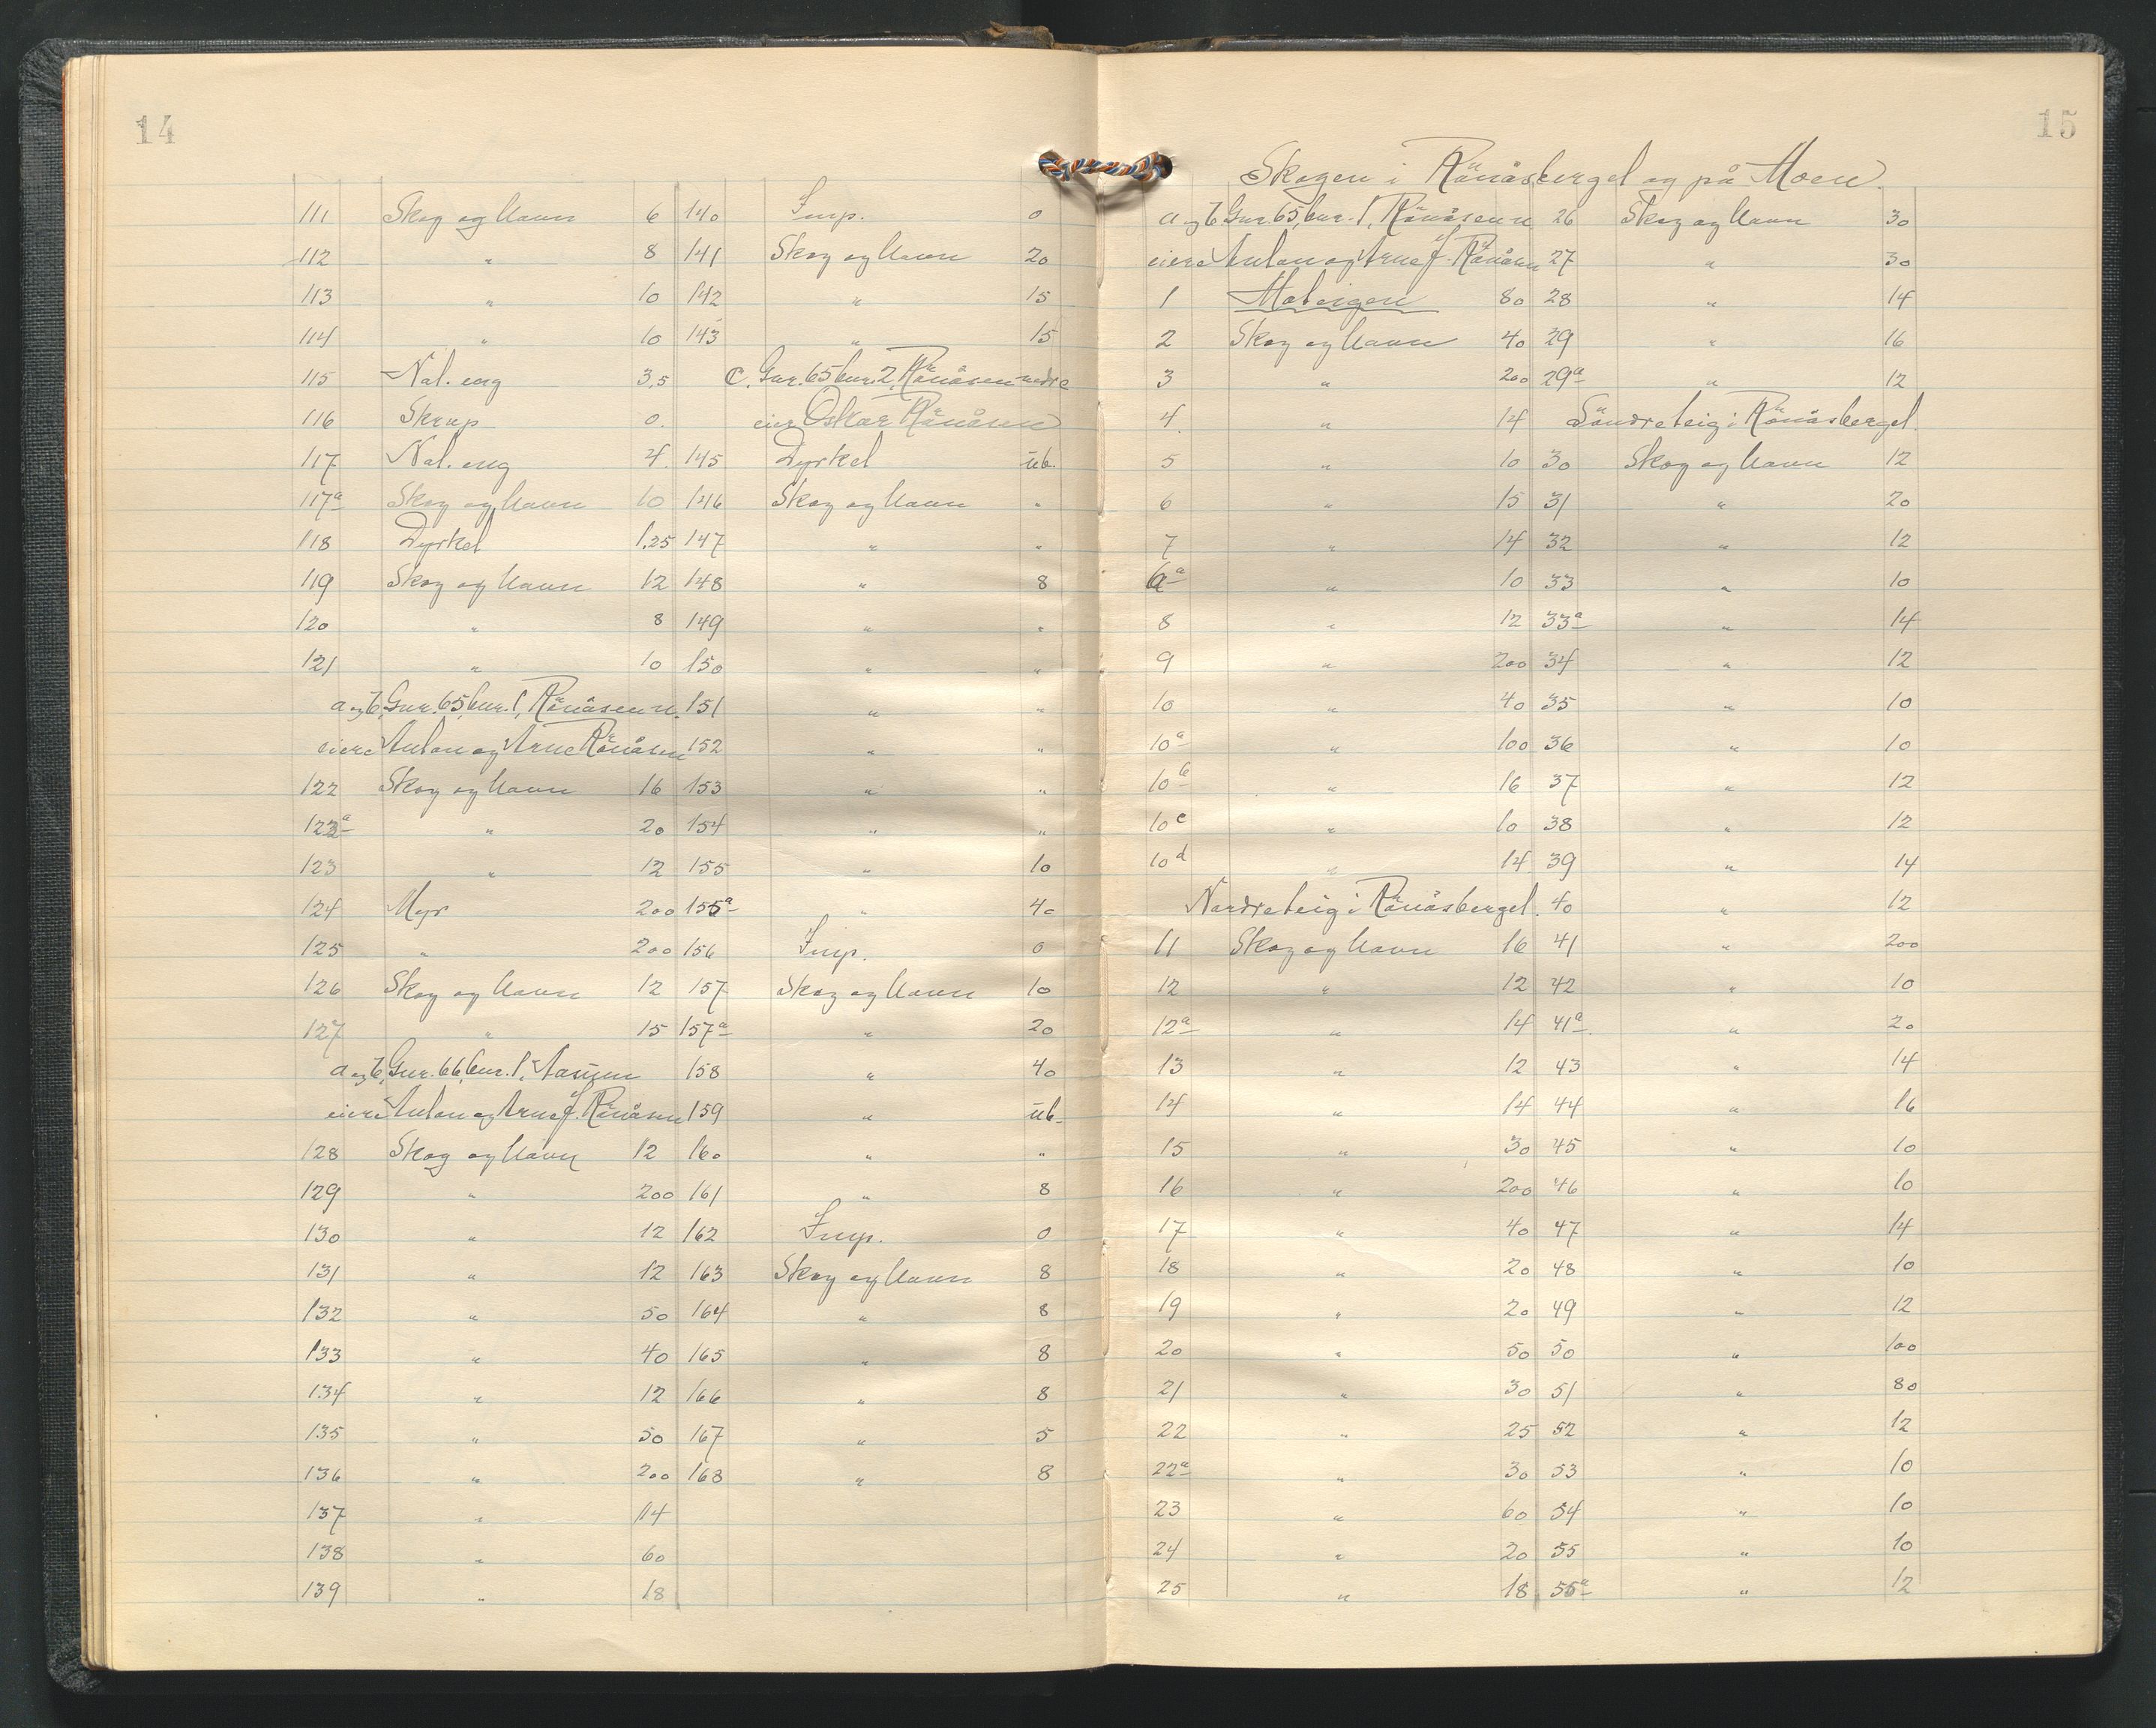 14
111 Skog og havn 6
112 " 8
113 " 10
114 " 10
115 Nat. eng 3,5
116 Skrap 0.
117 Nat. eng 4.
117a Skog og havn 10
118 Dyrket 1,25
119 Skog og havn 12
120 " 8
121 " 10
a og b, Gnr. 65, bnr. 1, Rönåsen n.
eiere Anton og Arne Rönåsen
122 Skog og havn 16
122a " 20
123 " 12
124 Myr 200
125 " 200
126 Skog og havn 12
127 " 15
a og b, Gnr. 66, bnr. 1,
eiere Anton og Arne J. Rönåsen
128 Skog og havn 12
129 " 200
130 " 12
131 " 12
132 " 50
133 " 40
134 " 12
135 " 50
136 " 200
137 " 14
138 " 60
139 " 18
140 Imp. 0
141 Skog og havn 20
142 " 15
143 " 15
C. Gnr. 65 bnr. 2, Rönåsen nedre
eier Oskar Rönåsen
145 Dyrket ub.
146 Skog og havn "
147 " "
148 " 8
149 " "
150 " "
151 " "
152 " "
153 " "
154 " "
155 " 10
155a " 40
156 Imp. 0
157 Skog og havn 10
157a " 20
158 " 40
159 " ub.
160 " "
161 " 8
162 Imp. 0
163 Skog og havn 8
164 " 8
165 " 8
166 " 8
167 " 5
168 " 8
15
Skogen i Rönåsberget og på Moen.
a og b, Gnr. 65, bnr. 1, Rönåsen n.
eiere Anton og Arne J. Rönåsen
1 Moteigen 80
2 Skog og havn 40
3 " 200
4. " 14
5 " 10
6 " 15
7 " 14
6a " 10
8 " 12
9 " 200
10 " 40
10a " 100
10b " 16
10c " 10
10d " 14
Nordreteig i Rönåsberget.
11 Skog og havn 16
12 " 12
12a " 14
13 " 12
14 " 14
15 " 30
16 " 200
17 " 40
18 " 20
19 " 20
20 " 50
21 " 30
22 " 25
22a " 30
23 " 60
24 " 20
25 " 18
26 Skog og havn 30
27 " 30
28 " 14
29 " 16
29a " 12
Söndreteig i Rönåsberget.
30 Skog og havn 12
31 " 20
32 " 12
33 " 10
33a " 14
34 " 12
35 " 10
36 " 10
37 " 12
38 " 12
39 " 14
40 " 12
41 " 200
42 " 10
41a " 20
43 " 14
44 " 16
45 " 10
46 " 10
47 " 14
48 " 10
49 " 12
50 " 100
51 " 80
52 " 12
53 " 10
54 " 10
55 " 10
55a " 12